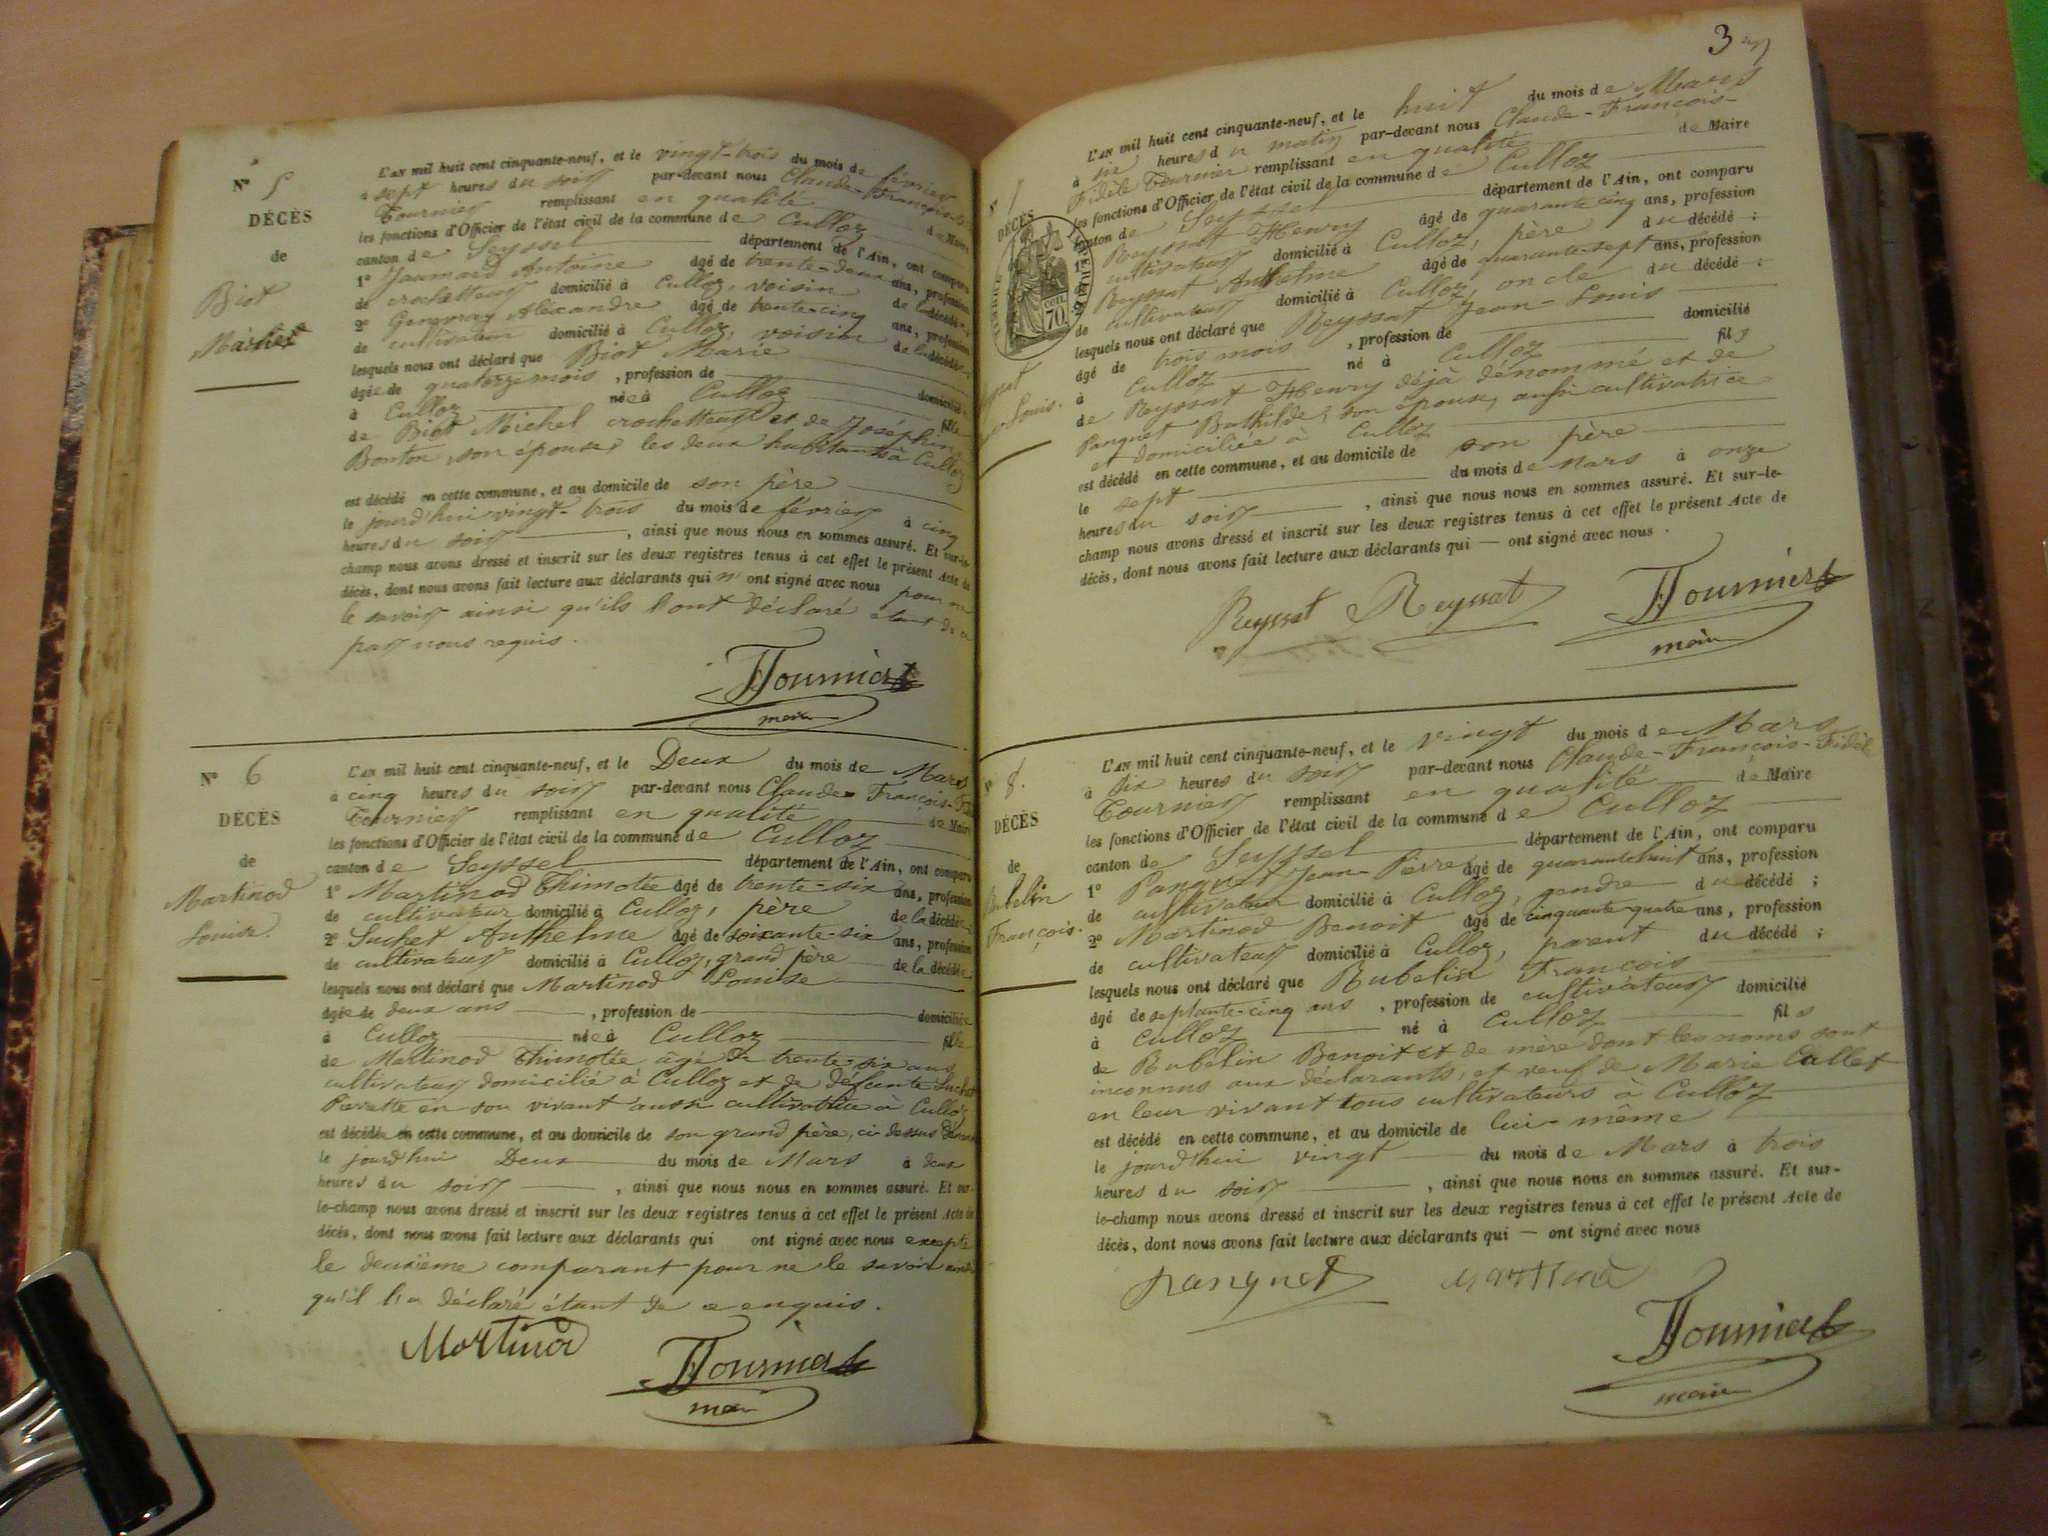 N° 5
DÉCÈS
de
Biot
L'AN mil huit cent cinquante-neuf, et le vingt-trois du mois de février
à sept heures du soir par-devant nous Claude-François
Tournier remplissant en qualité de Maire
les fonctions d'Officier de l'état civil de la commune de Culloz
canton de Seyssel département de l'Ain, ont comparu
1° Jaumard Antoine âgé de trente-deux ans, profession
de crochetteur domicilié à Culloz, voisin de la décédée
2° Genevray Aléxandre âgé de trente-cinq ans, profession
de cultivateur domicilié à Culloz, voisin de la décédée
lesquels nous ont déclaré que Biot Marie
âgée de quatorze mois , profession de domiciliée
à Culloz née à Culloz fille
de Biot Michel crochetteur et de Joséphine
Bonton son épouse, les deux habitants à Culloz
est décédé en cette commune, et au domicile de son père
le jourd'hui vingt-trois du mois de février à cinq
heures du soir , ainsi que nous nous en sommes assuré. Et sur-le-
champ nous avons dressé et inscrit sur les deux registres tenus à cet effet le présent Acte de
décès, dont nous avons fait lecture aux déclarants qui n' ont signé avec nous pour ne
le savoir ainsi qu'ils l'ont déclaré étant de ce
par nous requis.
Tournier
maire
N° 6
DÉCÈS
de
Martinod
Louise.
L'AN mil huit cent cinquante-neuf, et le Deux du mois de Mars
à cinq heures du soir par-devant nous Claude-François
Tournier remplissant en qualité de Maire
les fonctions d'Officier de l'état civil de la commune de Culloz
canton de Seyssel département de l'Ain, ont comparu
1° Martinod Thimotée âgé de trente-six ans, profession
de cultivateur domicilié à Culloz, père de la décédée
2° Suchet Anthelme âgé de soixante-six ans, profession
de cultivateur domicilié à Culloz, grand père de la décédée
lesquels nous ont déclaré que Martinod Louise
âgée de deux ans , profession de domiciliée
à Culloz née à Culloz fille
de Martinod Thimotée âgé de trente-six ans,
cultivateur domicilié à Culloz et de défunte Suchet
Pierrette en son vivant aussi cultivatrice à Culloz
est décédée en cette commune, et au domicile de son grand père, ci-dessus
le jourd'hui Deux du mois de Mars à deux
heures du soir , ainsi que nous nous en sommes assuré. Et sur-
le-champ nous avons dressé et inscrit sur les deux registres tenus à cet effet le présent Acte de
décès, dont nous avons fait lecture aux déclarants qui ont signé avec nous excepté
le deuxième comparant pour ne le savoir ainsi
qu'il l'a déclaré étant de ce enquis.
Martinod
Tournier
maire
3
DÉCÈS
70
Louis.
L'AN mil huit cent cinquante-neuf, et le huit du mois de Mars
à six heures du matin par-devant nous Claude-François-
Fidèle Tournier remplissant en qualité de Maire
les fonctions d'Officier de l'état civil de la commune de Culloz
canton de Seyssel département de l'Ain, ont comparu
1° Reyssat Henry âgé de quarante cinq ans, profession
cultivateur domicilié à Culloz, père du décédé ;
Reyssat Anthelme âgé de quarante-sept ans, profession
de cultivateur domicilié à Culloz, oncle du décédé ;
lesquels nous ont déclaré que Reyssat Jean-Louis
âgé de trois mois , profession de domicilié
à Culloz né à Culloz fils
de Reyssat Henry déjà dénommé et de
Panquet Bathilde, son épouse, aussi cultivatrice
et domiciliée à Culloz
est décédé en cette commune, et au domicile de son père
le sept du mois de Mars à onze
heures du soir , ainsi que nous nous en sommes assuré. Et sur-le-
champ nous avons dressé et inscrit sur les deux registres tenus à cet effet le présent Acte de
décès, dont nous avons fait lecture aux déclarants qui — ont signé avec nous .
Reyssat Reyssat Tournier
maire
N° 8.
DÉCÈS
de
Bubelin
François.
L'AN mil huit cent cinquante-neuf, et le vingt du mois de Mars
à six heures du soir par-devant nous Claude-François-Fidèle
Tournier remplissant en qualité de Maire
les fonctions d'Officier de l'état civil de la commune de Culloz
canton de Seyssel département de l'Ain, ont comparu
1° Panquet Jean-Pierre âgé de quarante huit ans, profession
de cultivateur domicilié à Culloz, gendre du décédé ;
2° Martinod Benoit âgé de cinquante-quatre ans, profession
de cultivateur domicilié à Culloz, parent du décédé ;
lesquels nous ont déclaré que Bubelin François
âgé de septante-cinq ans , profession de cultivateur domicilié
à Culloz né à Culloz fils
de Bubelin Benoit et de mère dont les noms sont
inconnus aux déclarants, et veuf de Marie Callet
en leur vivant tous cultivateurs à Culloz
est décédé en cette commune, et au domicile de lui-même
le jourd'hui vingt du mois de Mars à trois
heures du soir , ainsi que nous nous en sommes assuré. Et sur-
le-champ nous avons dressé et inscrit sur les deux registres tenus à cet effet le présent Acte de
décès, dont nous avons fait lecture aux déclarants qui — ont signé avec nous
Panquet Martinod
Tournier
maire